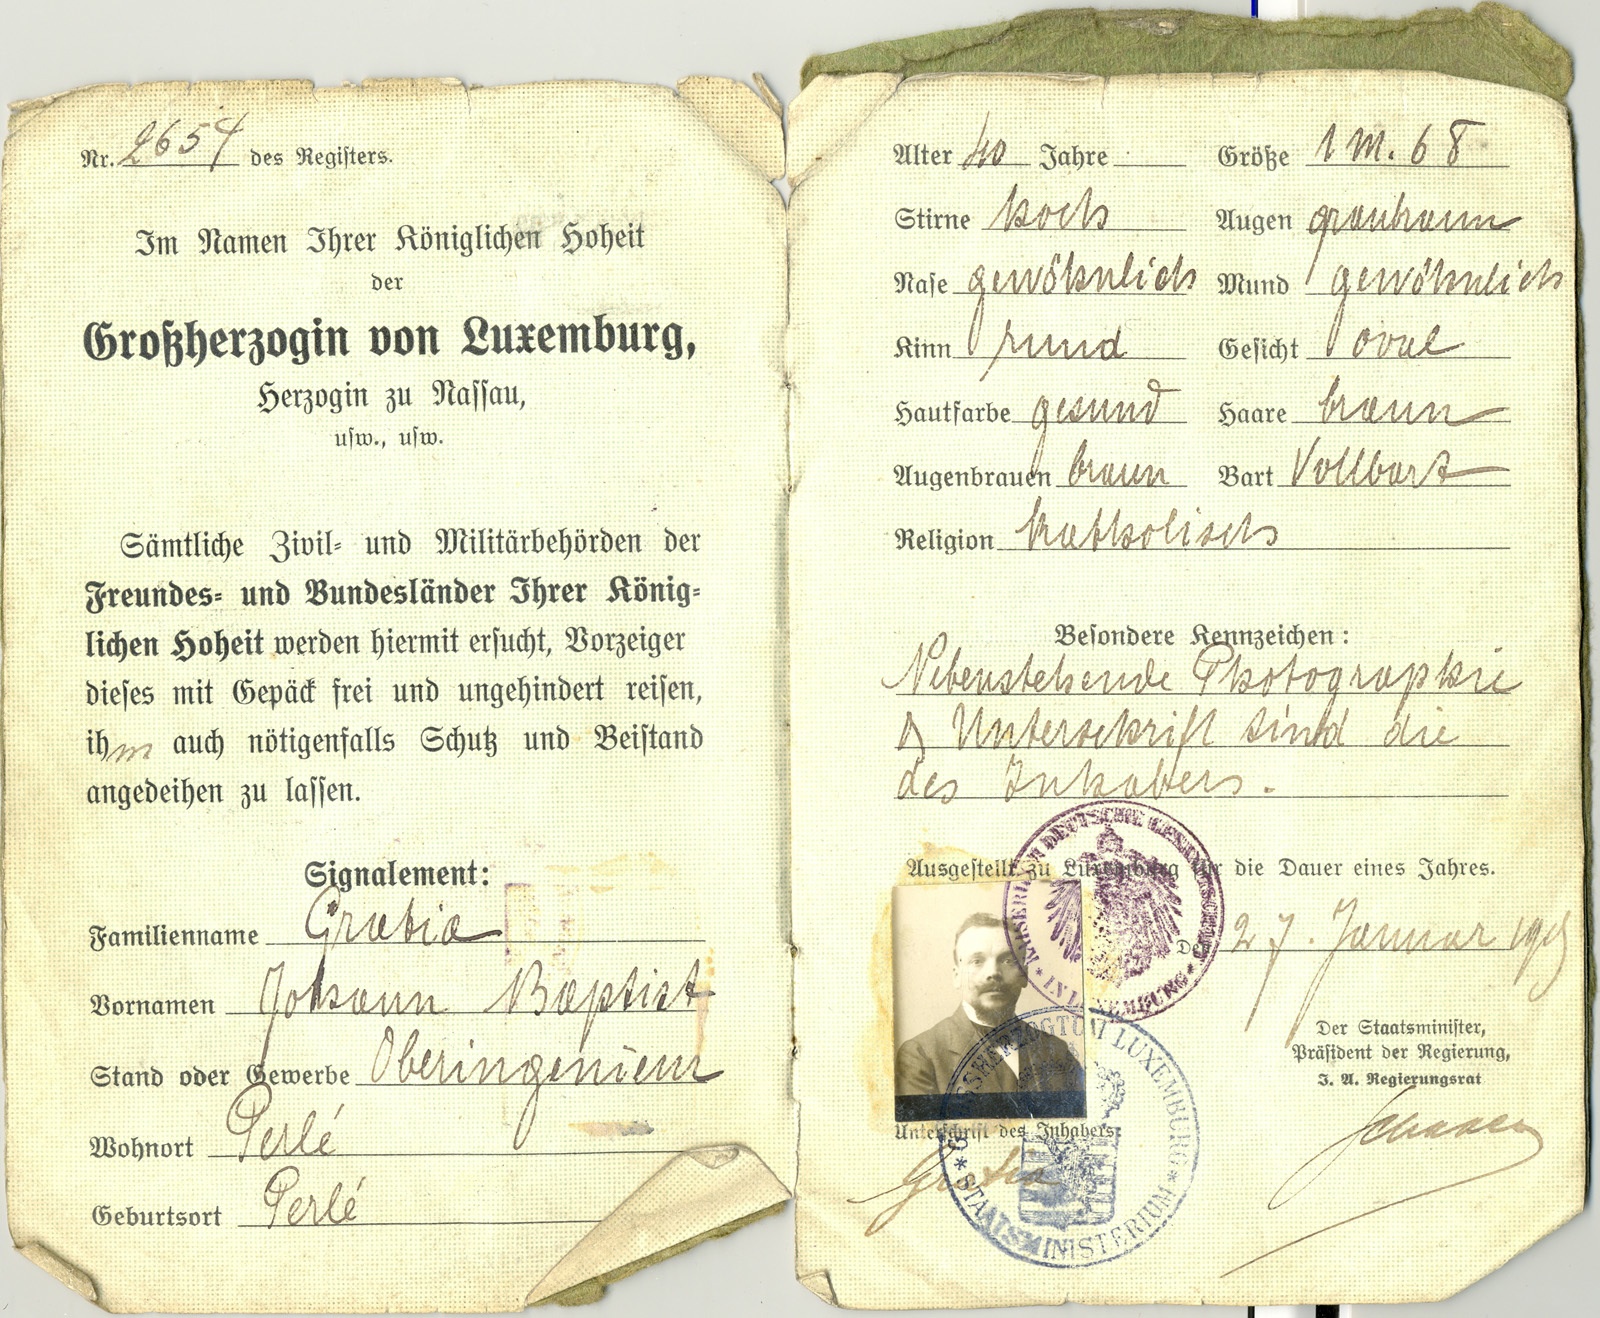 Nr. 2654 des Registers.
Im Namen Ihrer Königlichen Hoheit
der
Großherzogin von Luxemburg,
Herzogin zu Nassau,
usw., usw.
Sämtliche Zivil- und Militärbehörden der
Freundes- und Bundesländer Ihrer König-
lichen Hoheit werden hiermit ersucht, Vorzeiger
dieses mit Gepäck frei und ungehindert reisen,
ihm auch nötigenfalls Schutz und Beistand
angedeihen zu lassen.
Signalement:
Familienname Gratia
Vornamen Johann Baptist
Stand oder Gewerbe Oberingenieur
Wohnort Perlé
Geburtsort Perlé
Alter 40 Jahre Größe 1 m. 68
Stirne hoch Augen graubraun
Nase gewöhnlich Mund gewöhnlich
Kinn rund Gesicht oval
Hautfarbe gesund Haare braun
Augenbrauen braun Bart Vollbart
Religion katholisch
Besondere Kennzeichen:
Nebenstehende Photographie
& Unterschrift sind die
des Inhabers.
Ausgestellt zu Luxemburg für die Dauer eines Jahres.
KAISERLICH DEUTSCHE GESANDTSCHAFT * IN LUXEMBURG *
Den 27. Januar 1915
Der Staatsminister,
Präsident der Regierung,
I. A. Regierungsrat
GROSSHERZOGTUM LUXEMBURG * STAATSMINISTERIUM *
Unterschrift des Inhabers:
Gratia